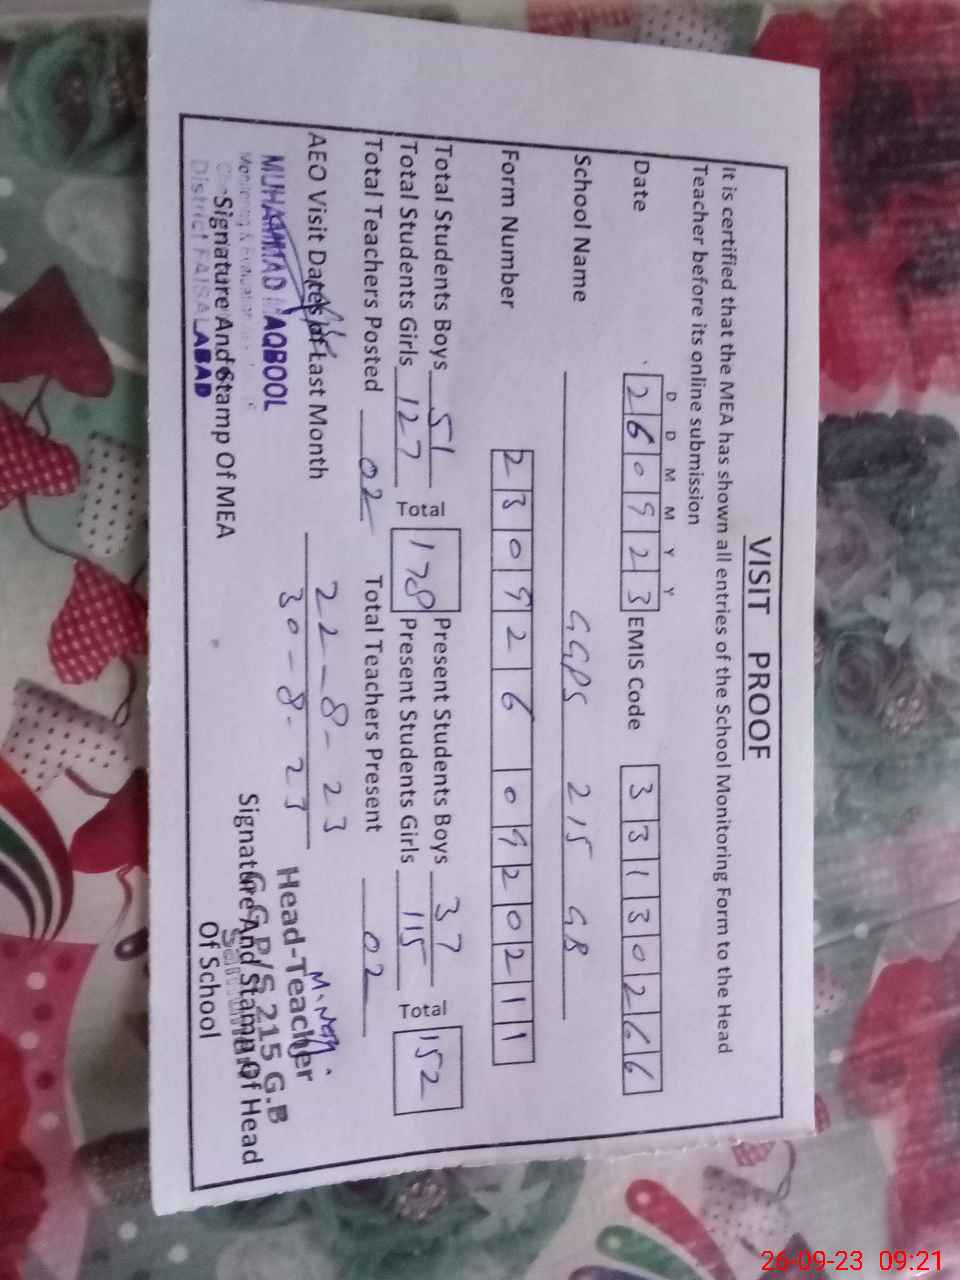 VISIT PROOF
It is certified that the MEA has shown all entries of the School Monitoring Form to the Head
Teacher before its online submission
D D M M Y Y
Date 260923 EMIS Code 33130266
School Name GGPS 215 GB
Form Number 230926 09 2 0211
Total Students Boys 51 Total 178 Present Students Boys 37 Total 152
Total Students Girls 127 Present Students Girls 115
Total Teachers Posted 02 Total Teachers Present 02
AEO Visit Dates of Last Month 22-8-23
30-8-23
MUHAMMAD MAQBOOL
Monitoring & Evaluation
Signature And Stamp Of MEA
District FAISALABAD
Head-Teacher
G.G.P/S 215 G.B
Signature And Stamp Of Head
Of School
26-09-23 09:21